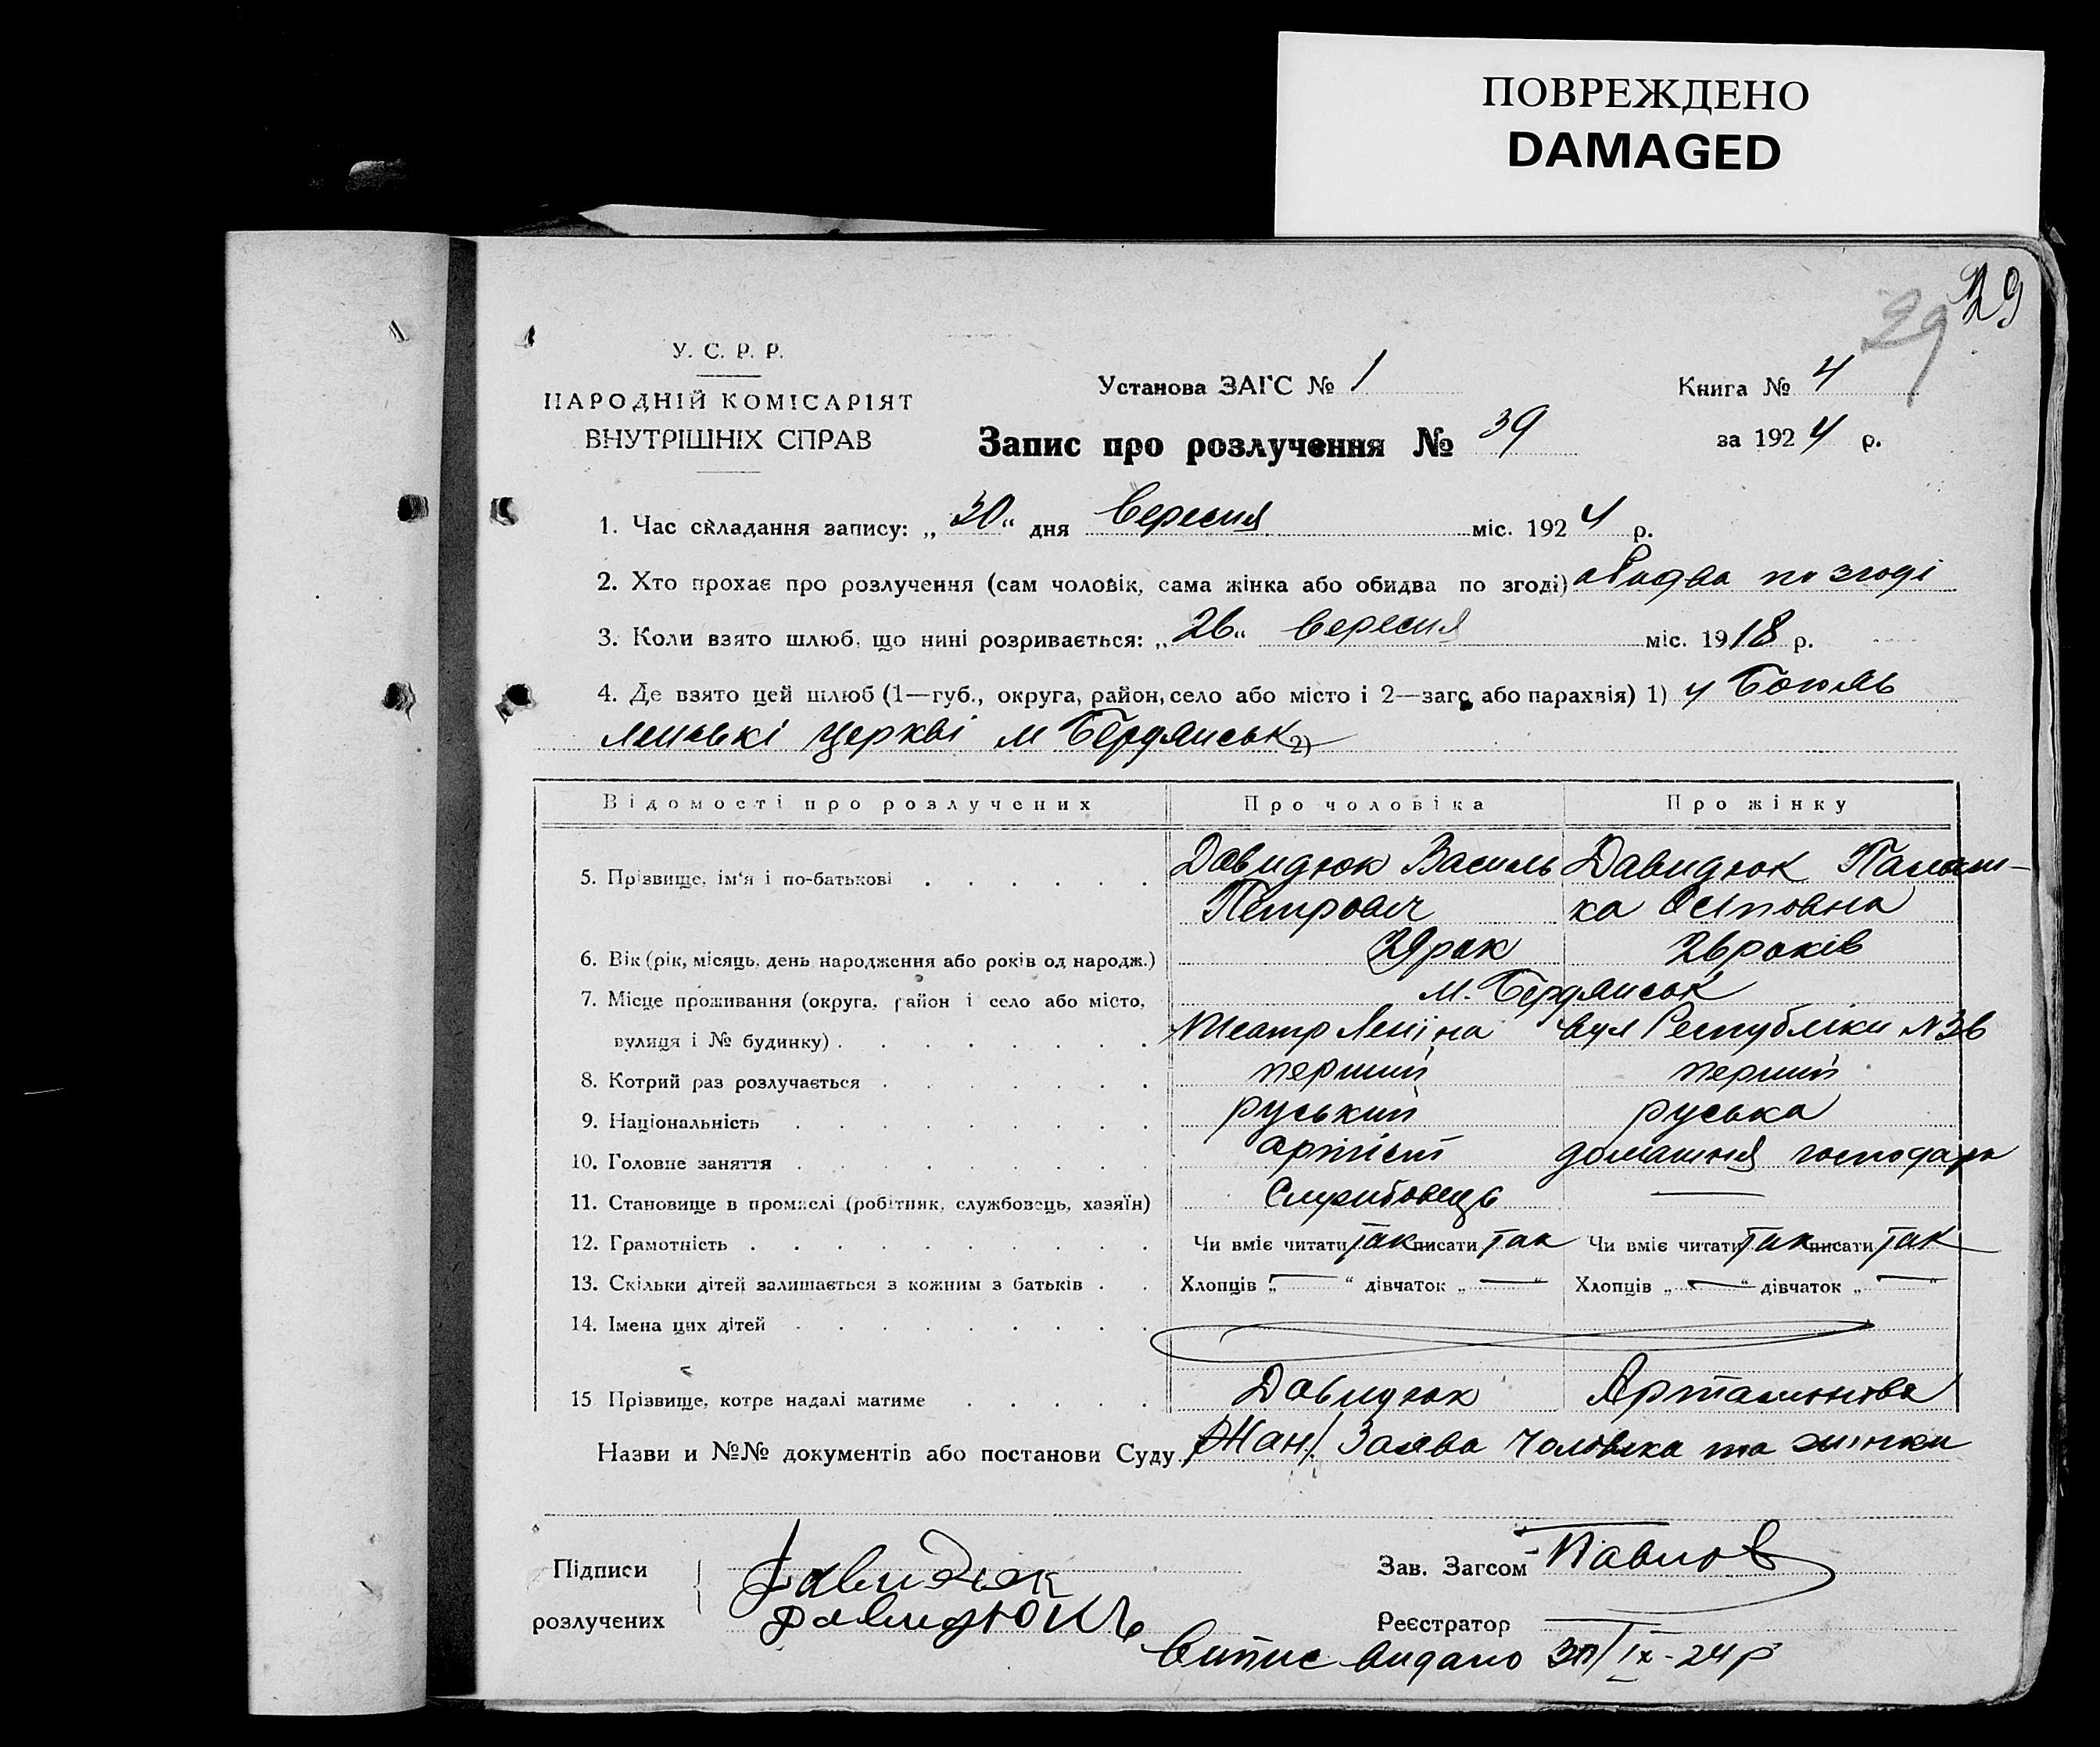 ПОВРЕЖДЕНО
DAMAGED
29
29
У. С. Р. Р.
НАРОДНІЙ КОМІСАРІЯТ
ВНУТРІШНІХ СПРАВ
Установа ЗАГС № 1
Книга № 4
Запис про розлучення № 39
за 1924 р.
1. Час складання запису: „30“ дня Вересня міс. 1924 р.
2. Хто прохає про розлучення (сам чоловік, сама жінка або обидва по згоді) обидва по згоді
3. Коли взято шлюб, що нині розривається: „26“ вересня міс. 1918 р.
4. Де взято цей шлюб (1—губ., округа, район, село або місто і 2—загс або парахвія) 1) у
церкві м Бердянськ 2)
Відомості про розлучених Про чоловіка Про жінку
5. Прізвище, ім'я і по-батькові Давидюк Василь Давидюк
Петрович ка Осіповна
6. Вік (рік, місяць, день народження або років од народж.) 29 рок 26 років
7. Місце проживання (округа, район і село або місто, м. Бердянськ
вулиця і № будинку) Театр Леніна вул Республіки N 36
8. Котрий раз розлучається перший перший
9. Національність руський руська
10. Головне заняття артіст домашня господарка
11. Становище в промислі (робітник, службовець, хазяїн) Службовець —
12. Грамотність Чи вміє читати так писати так Чи вміє читати так писати так
13. Скільки дітей залишається з кожним з батьків Хлопців „—“ дівчаток „—“ Хлопців „—“ дівчаток „—“
14. Імена цих дітей
15 Прізвище, котре надалі матиме Давидюк Артамонова
Назви и №№ документів або постанови Суду Заява Чоловіка та жінки
Підписи Давидюк
Зав. Загсом Павлов
розлучених Давидюкъ
Реєстратор
Витис видано 30/IX-24 р